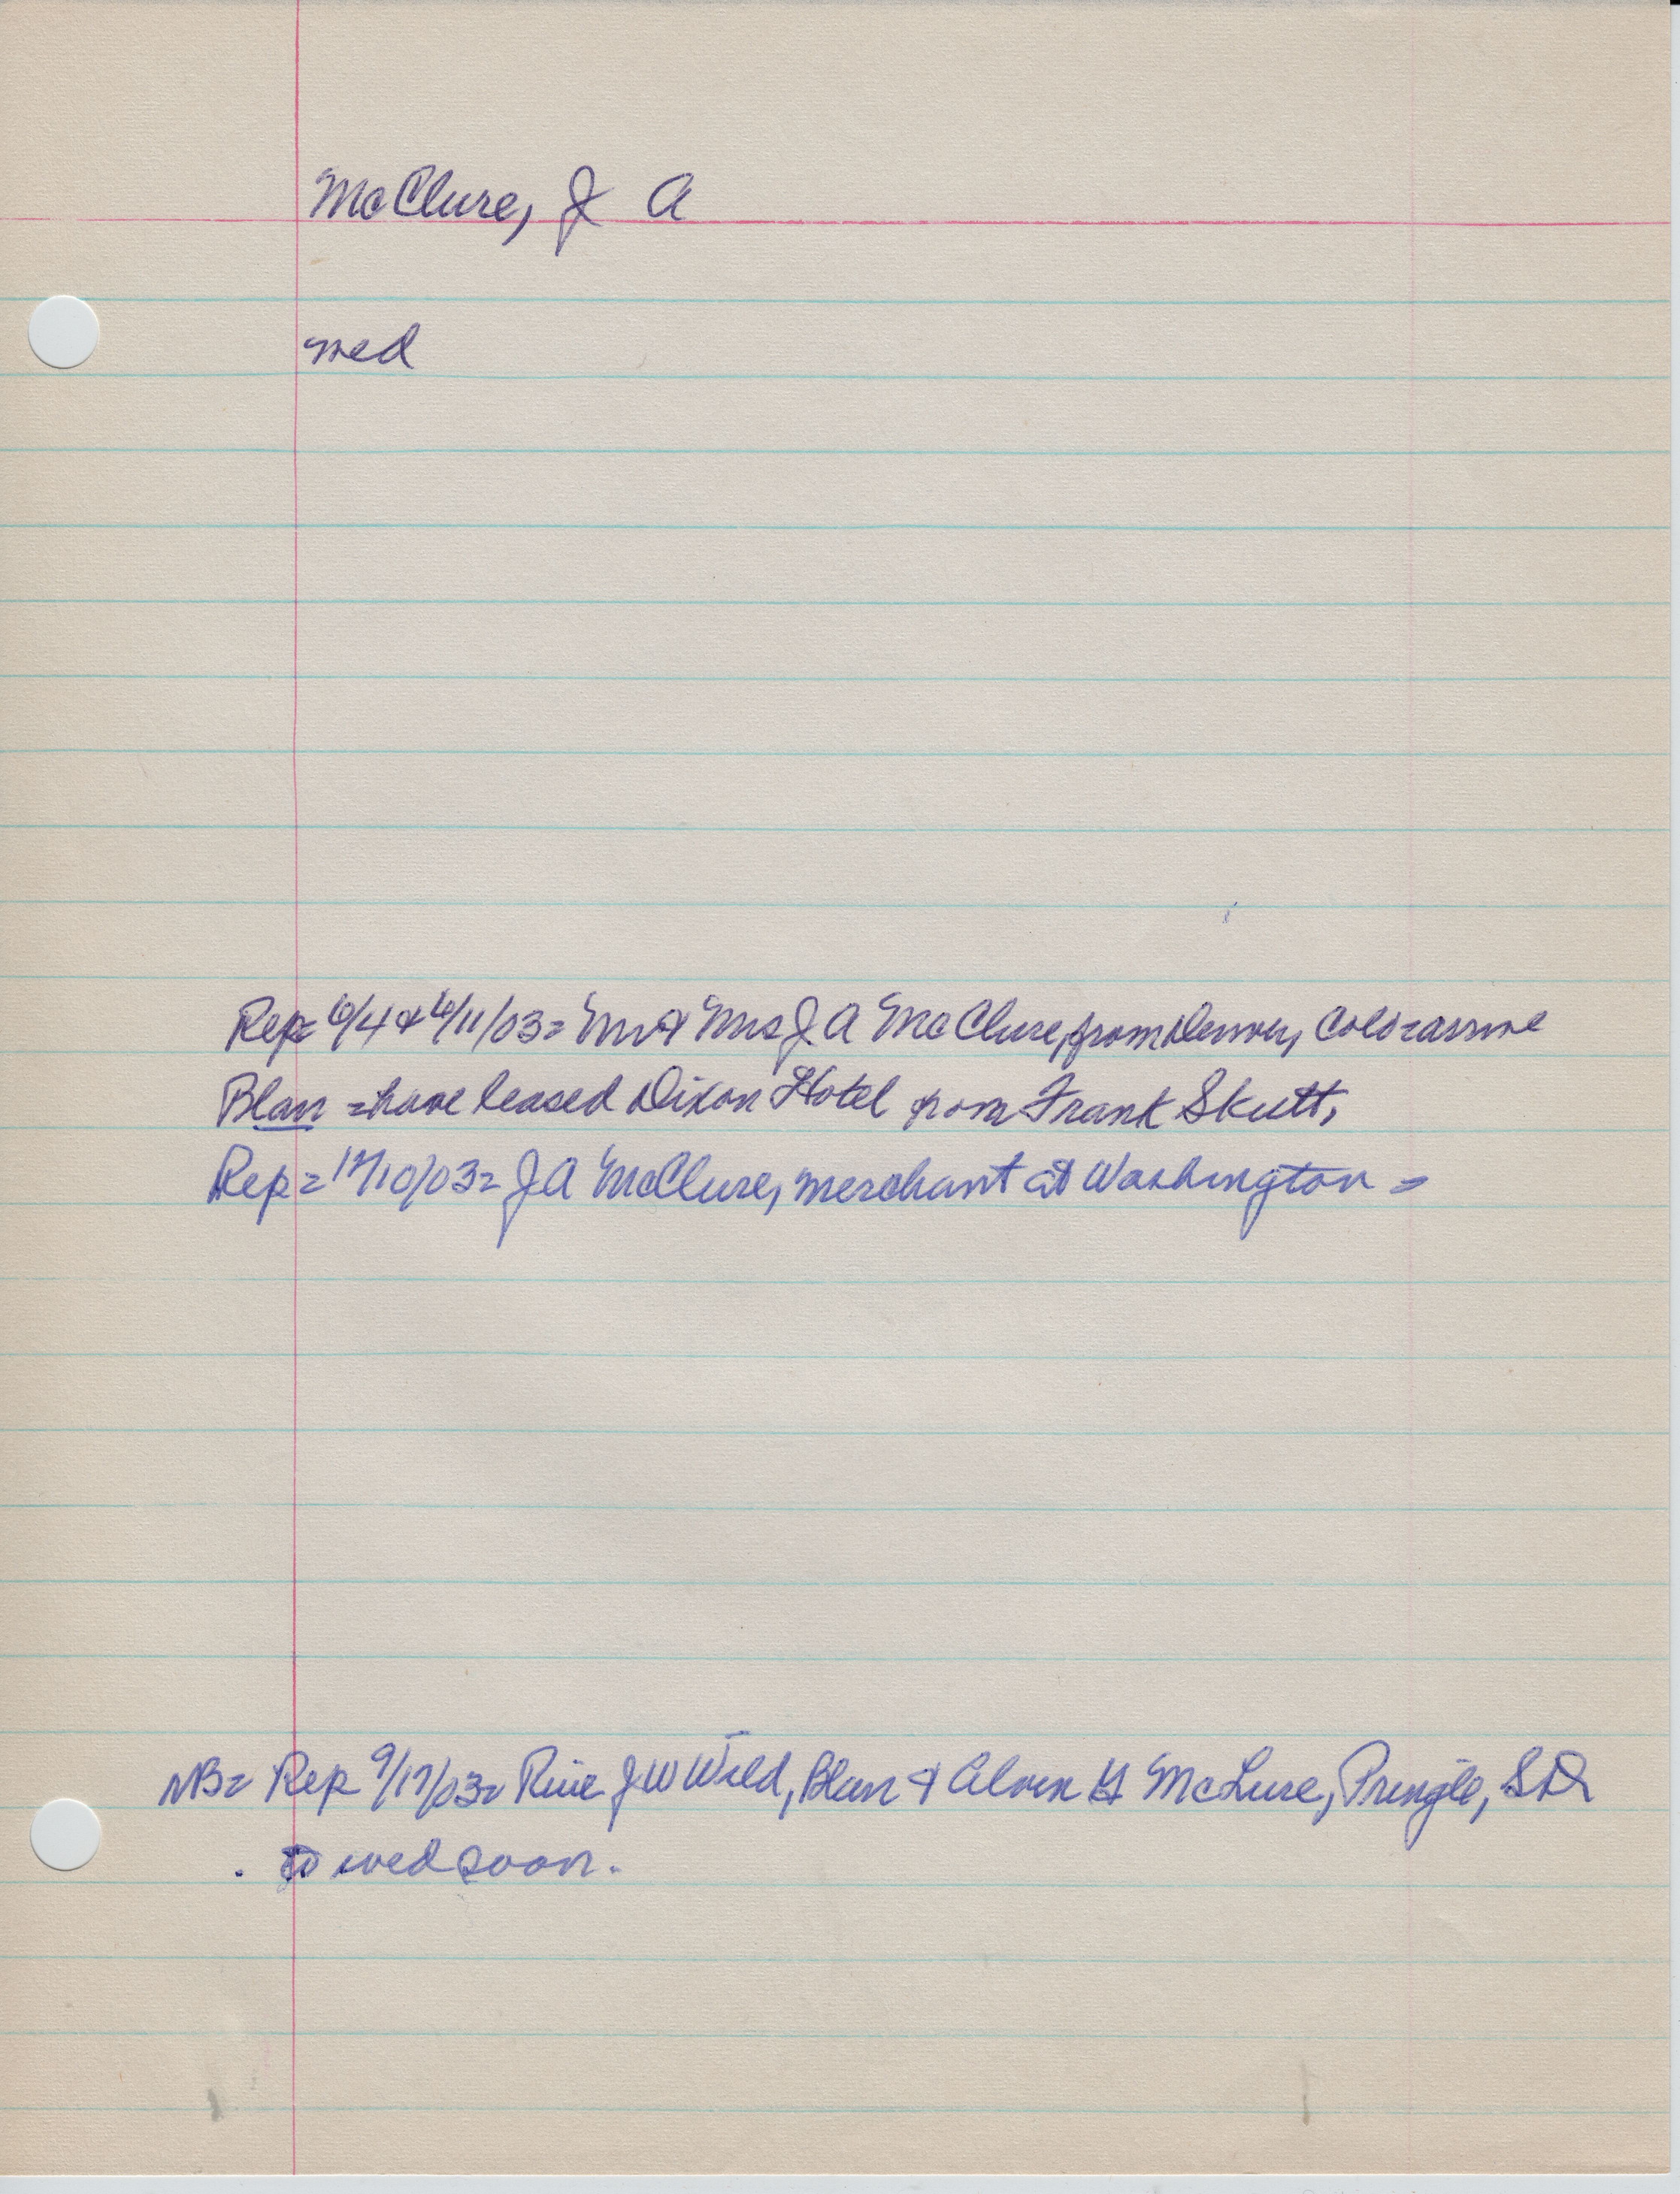 McClure, J A
med
Rep= 6/4 & 6/11/03= Mr & Mrs J A McClure, from Denver, Colo=arrive
Blan =have leased Dixon Hotel from Frank Skutt,
Rep= 12/10/03= J A McClure, merchant at Washington =
NB= Rep 9/17/03= J W Wild, Blan & Alven G McLure, Pringle, SD
to wed soon.